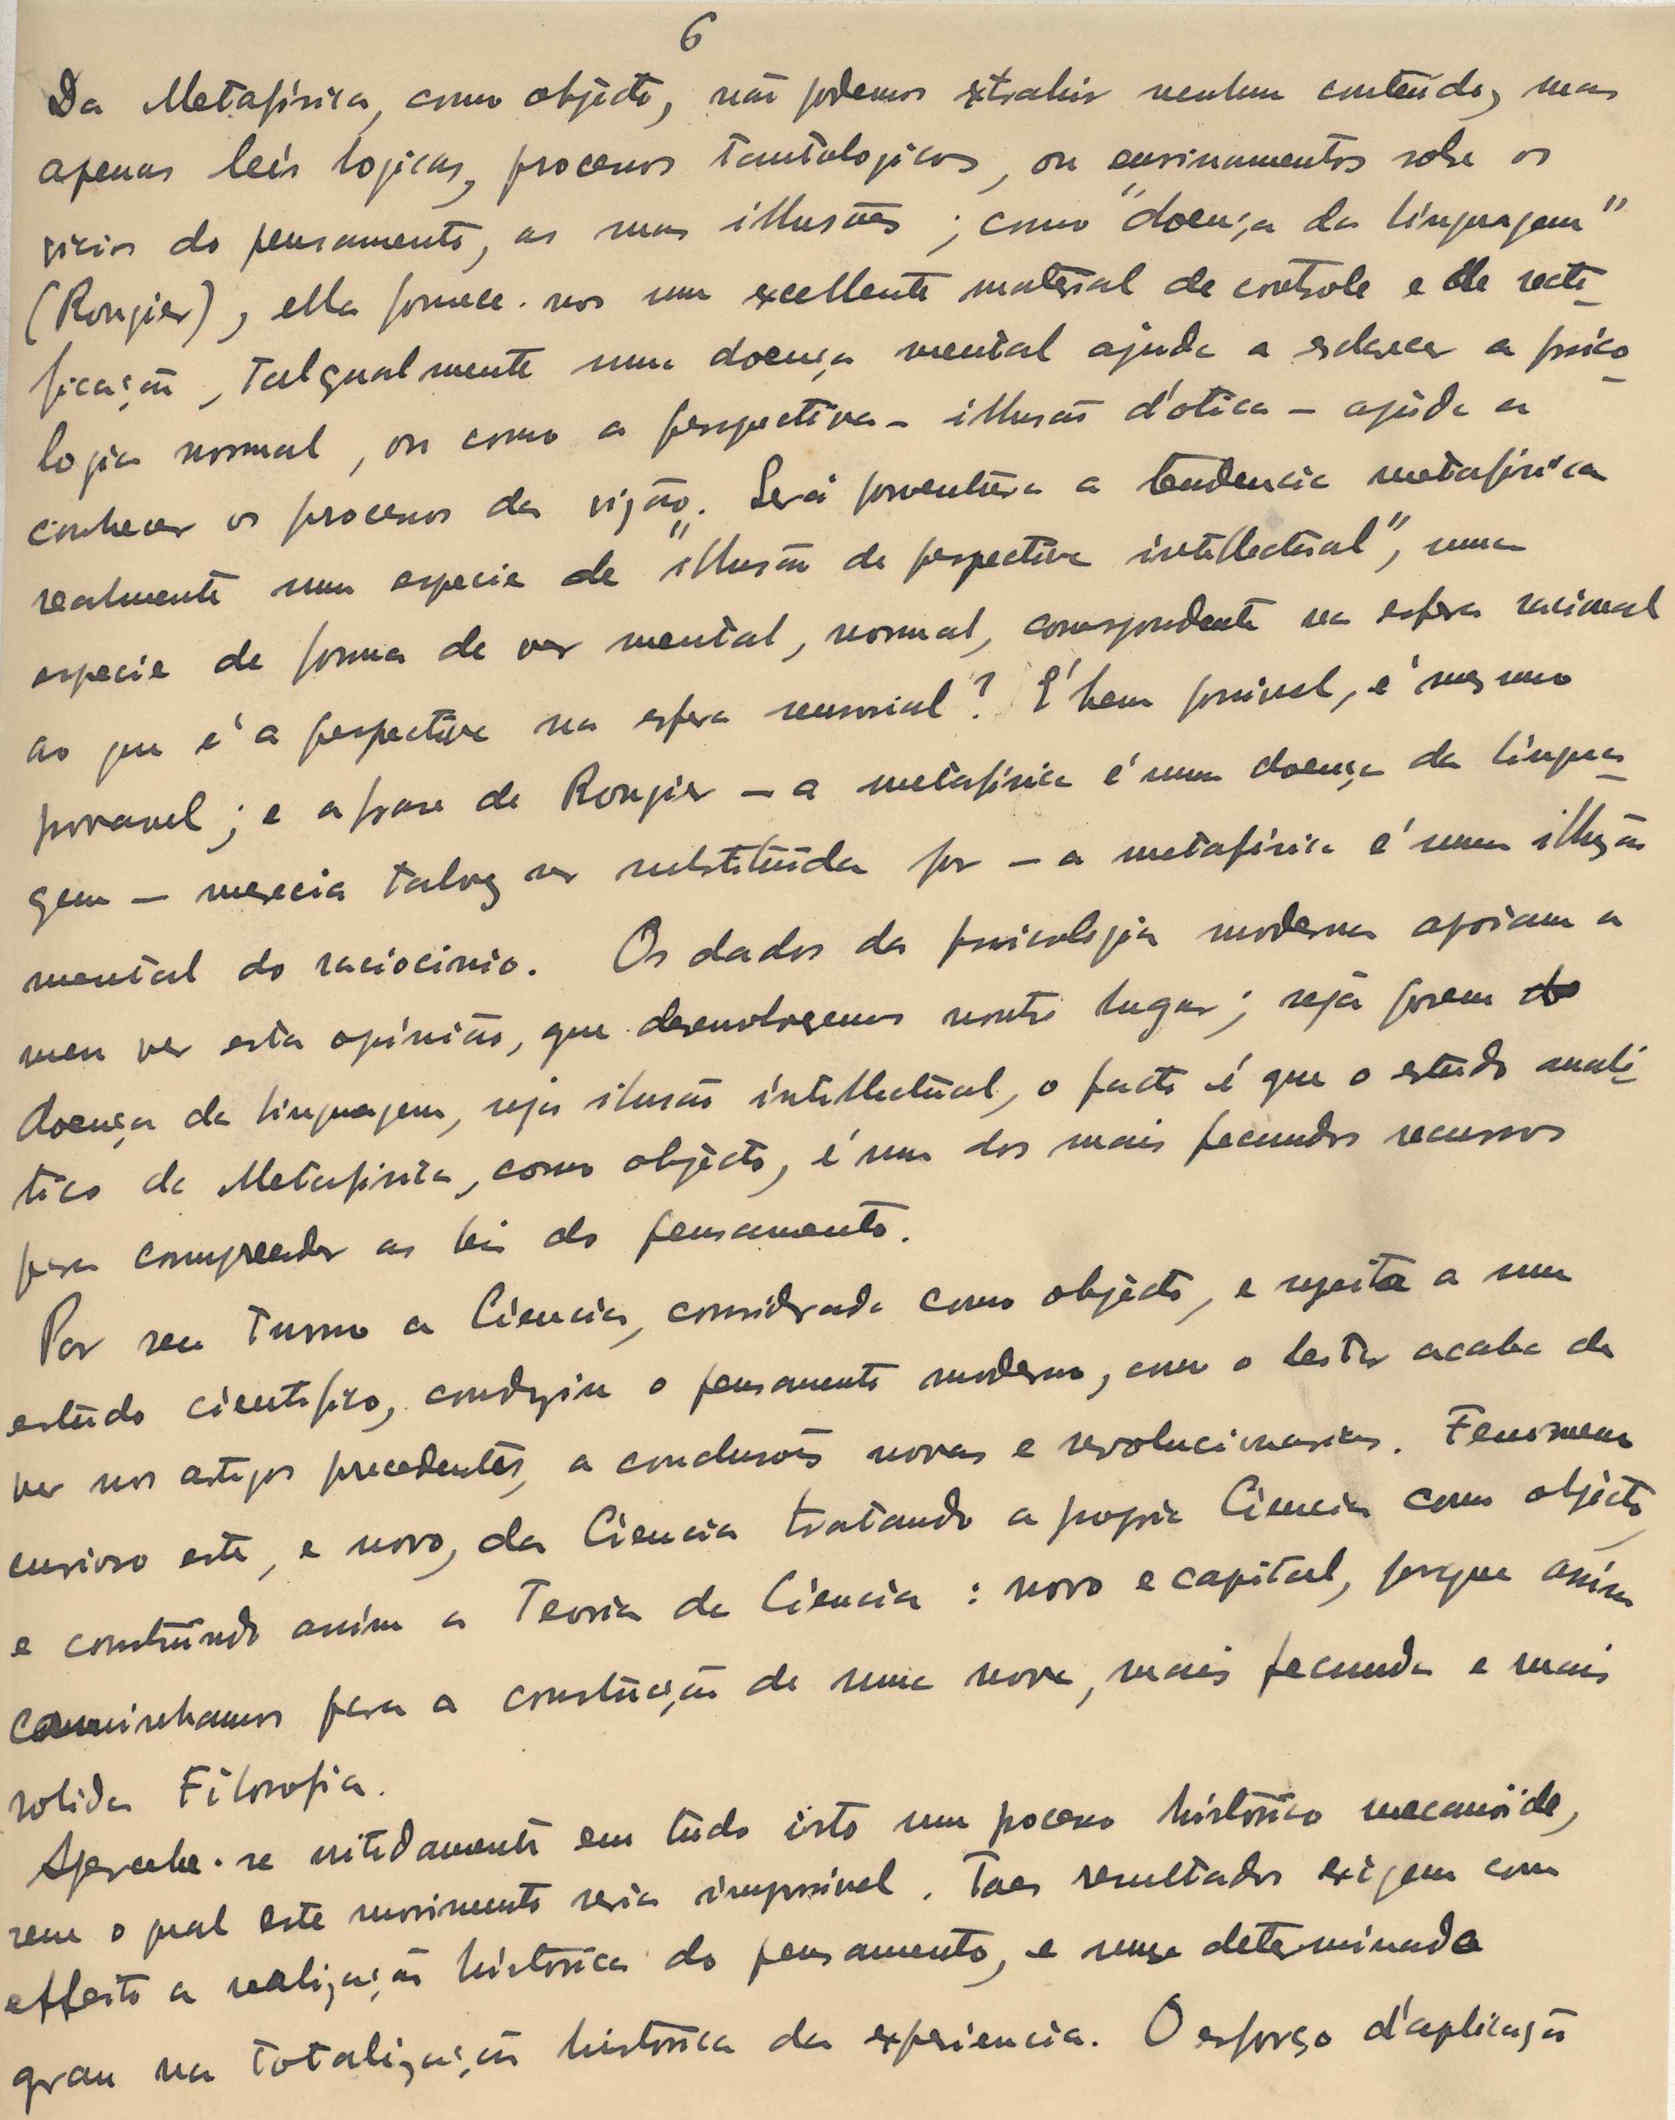 6
Da Metafísica, como objécto, não podemos extrahir nenhum conteúdo, mas
apenas leis logicas, processos tautologicos, ou ensinamentos sobre os
vicios do pensamento, as suas illusões ; como "doença da linguagem"
(Rougier), ella fornece-nos um excellente material de controle e de recti-
ficação, talqualmente uma doença mental ajuda a esclarecer a psico-
logia normal, ou como a perspectiva - illusão d'otica - ajuda a
conhecer os processos da visão. Será porventura a tendencia metafísica
realmente uma especie de "illusão de perspectiva intellectual", uma
especie de forma de ver mental, normal, correspondente na esfera racional
ao que é a perspectiva na esfera sensorial? É bem possivel, é mesmo
provavel ; e a frase de Rougier - a metafísica é uma doença da lingua-
gem - merecia talvez ser substituída por - a metafísica é uma illusão
mental do raciocinio. Os dados da psicologia moderna apoiam a
meu ver esta opinião, que desenvolvemos noutro lugar ; seja porem
doença da linguagem, seja ilusão intellectual, o facto é que o estudo anali-
tico da Metafísica, como objécto, é um dos mais fecundos recursos
para compreender as leis do pensamento.
Por seu turno a Ciencia, considerada como objécto, e sujeita a um
estudo cientifico, conduziu o pensamento moderno, como o leitor acaba de
ver nos artigos precedentes, a conclusões novas e revolucionarias. Fenomeno
curioso este, e novo, da Ciencia tratando a propria Ciencia como objécto,
e construindo assim a Teoria da Ciencia : novo e capital, porque assim
caminhamos para a construção de uma nova, mais fecunda e mais
solida Filosofia.
Apercebe-se nitidamente em tudo isto um pocesso histórico mecanóide,
sem o qual este movimento seria impossivel. Taes resultados exigem com
effeito a realização histórica do pensamento, e uma determinada
grau na totalização histórica da experiencia. O esforço d'aplicação